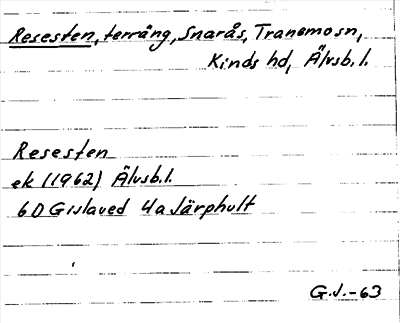 Resesten, terräng, Snarås, Tranemo sn,
Kinds hd, Älvsb. l.
Resesten
ek (1962) Älvsb.l.
6D Gislaved 4a Järphult
G.J.-63